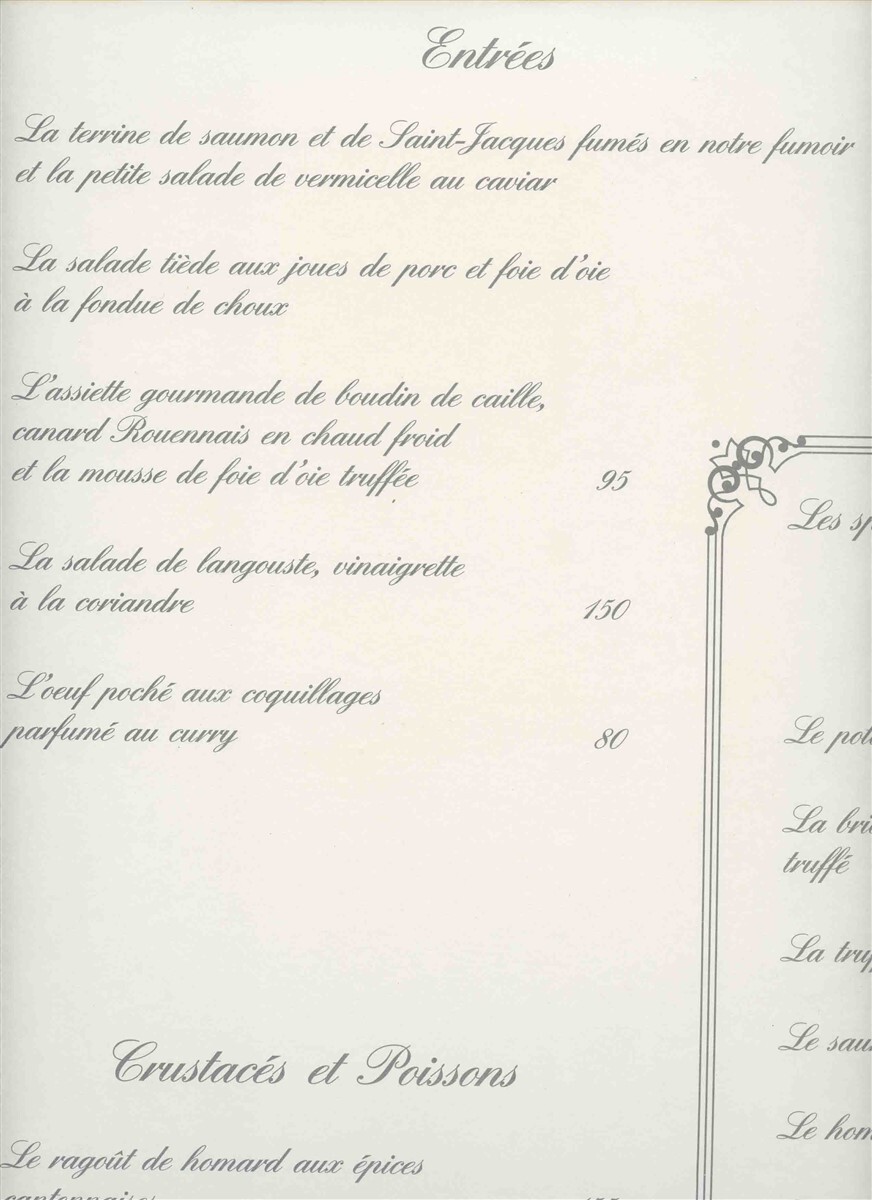 Entrées
La terrine de saumon et de Saint-Jacques fumés en notre fumoir
et la petite salade de vermicelle au caviar
La salade tiède aux joues de porc et foie d'oie
à la fondue de choux
L'assiette gourmande de boudin de caille,
canard Rouennais en chaud froid
et la mousse de foie d'oie truffée 95
La salade de langouste, vinaigrette
à la coriandre 150
L'oeuf poché aux coquillages
parfumé au curry 80
Crustacés et Poissons
Le ragoût de homard aux épices
cantonnaises
Les
Le
La
truffé
La
Le
Le